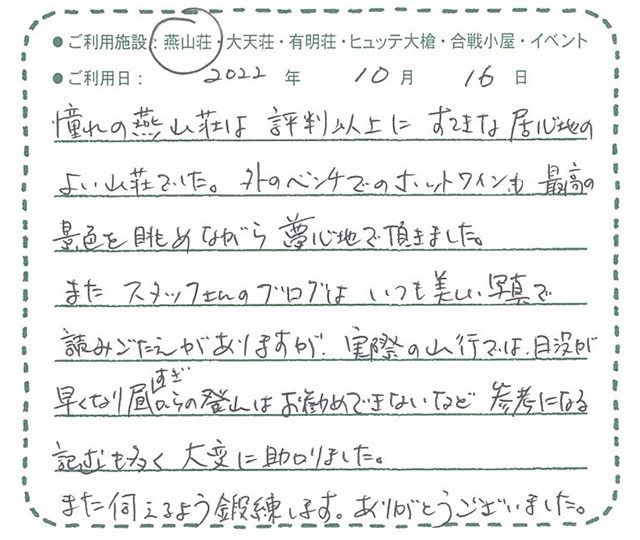 ●ご利用施設：燕山荘・大天荘・有明荘・ヒュッテ大槍・合戦小屋・イベント
●ご利用日： 2022 年 10 月 16 日
憧れの燕山荘は 評判以上に すてきな居心地の
よい山荘でした。外のベンチでのホットワインも 最高の
景色を眺めながら 夢心地で頂きました。
また スタッフさんのブログは いつも美しい写真で
読みごたえがありますが、実際の山行では、日没が
早くなり昼すぎからの登山はお勧めできないなど 参考になる
記述も多く 大変に助かりました。
また伺えるよう鍛練します。ありがとうございました。